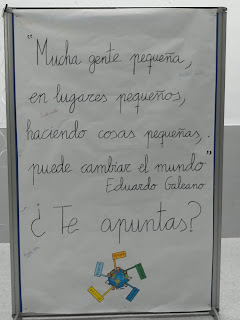 "Mucha gente pequeña,
en lugares pequeños,
haciendo cosas pequeñas,
puede cambiar el mundo"
Eduardo Galeano
¿Te apuntas?